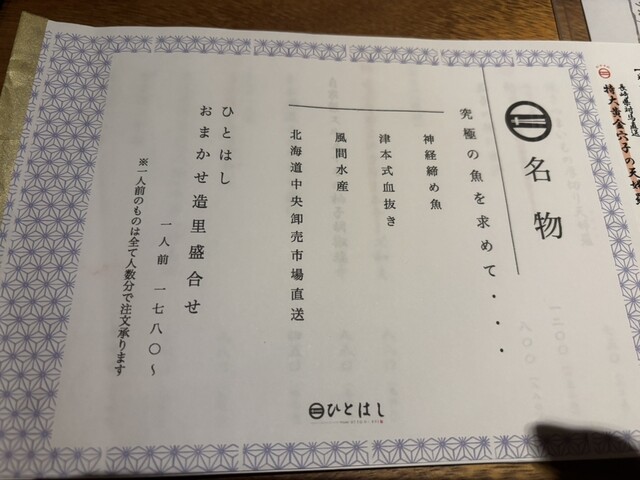 長崎県対馬直送
特大黄金穴子の天婦羅
名物
究極の魚を求めて・・・
神経締め魚
津本式血抜き
風間水産
北海道中央卸売市場直送
ひとはし
おまかせ造里盛合せ
一人前 一七八〇～
※一人前のものは全て人数分で注文承ります
ひとはし